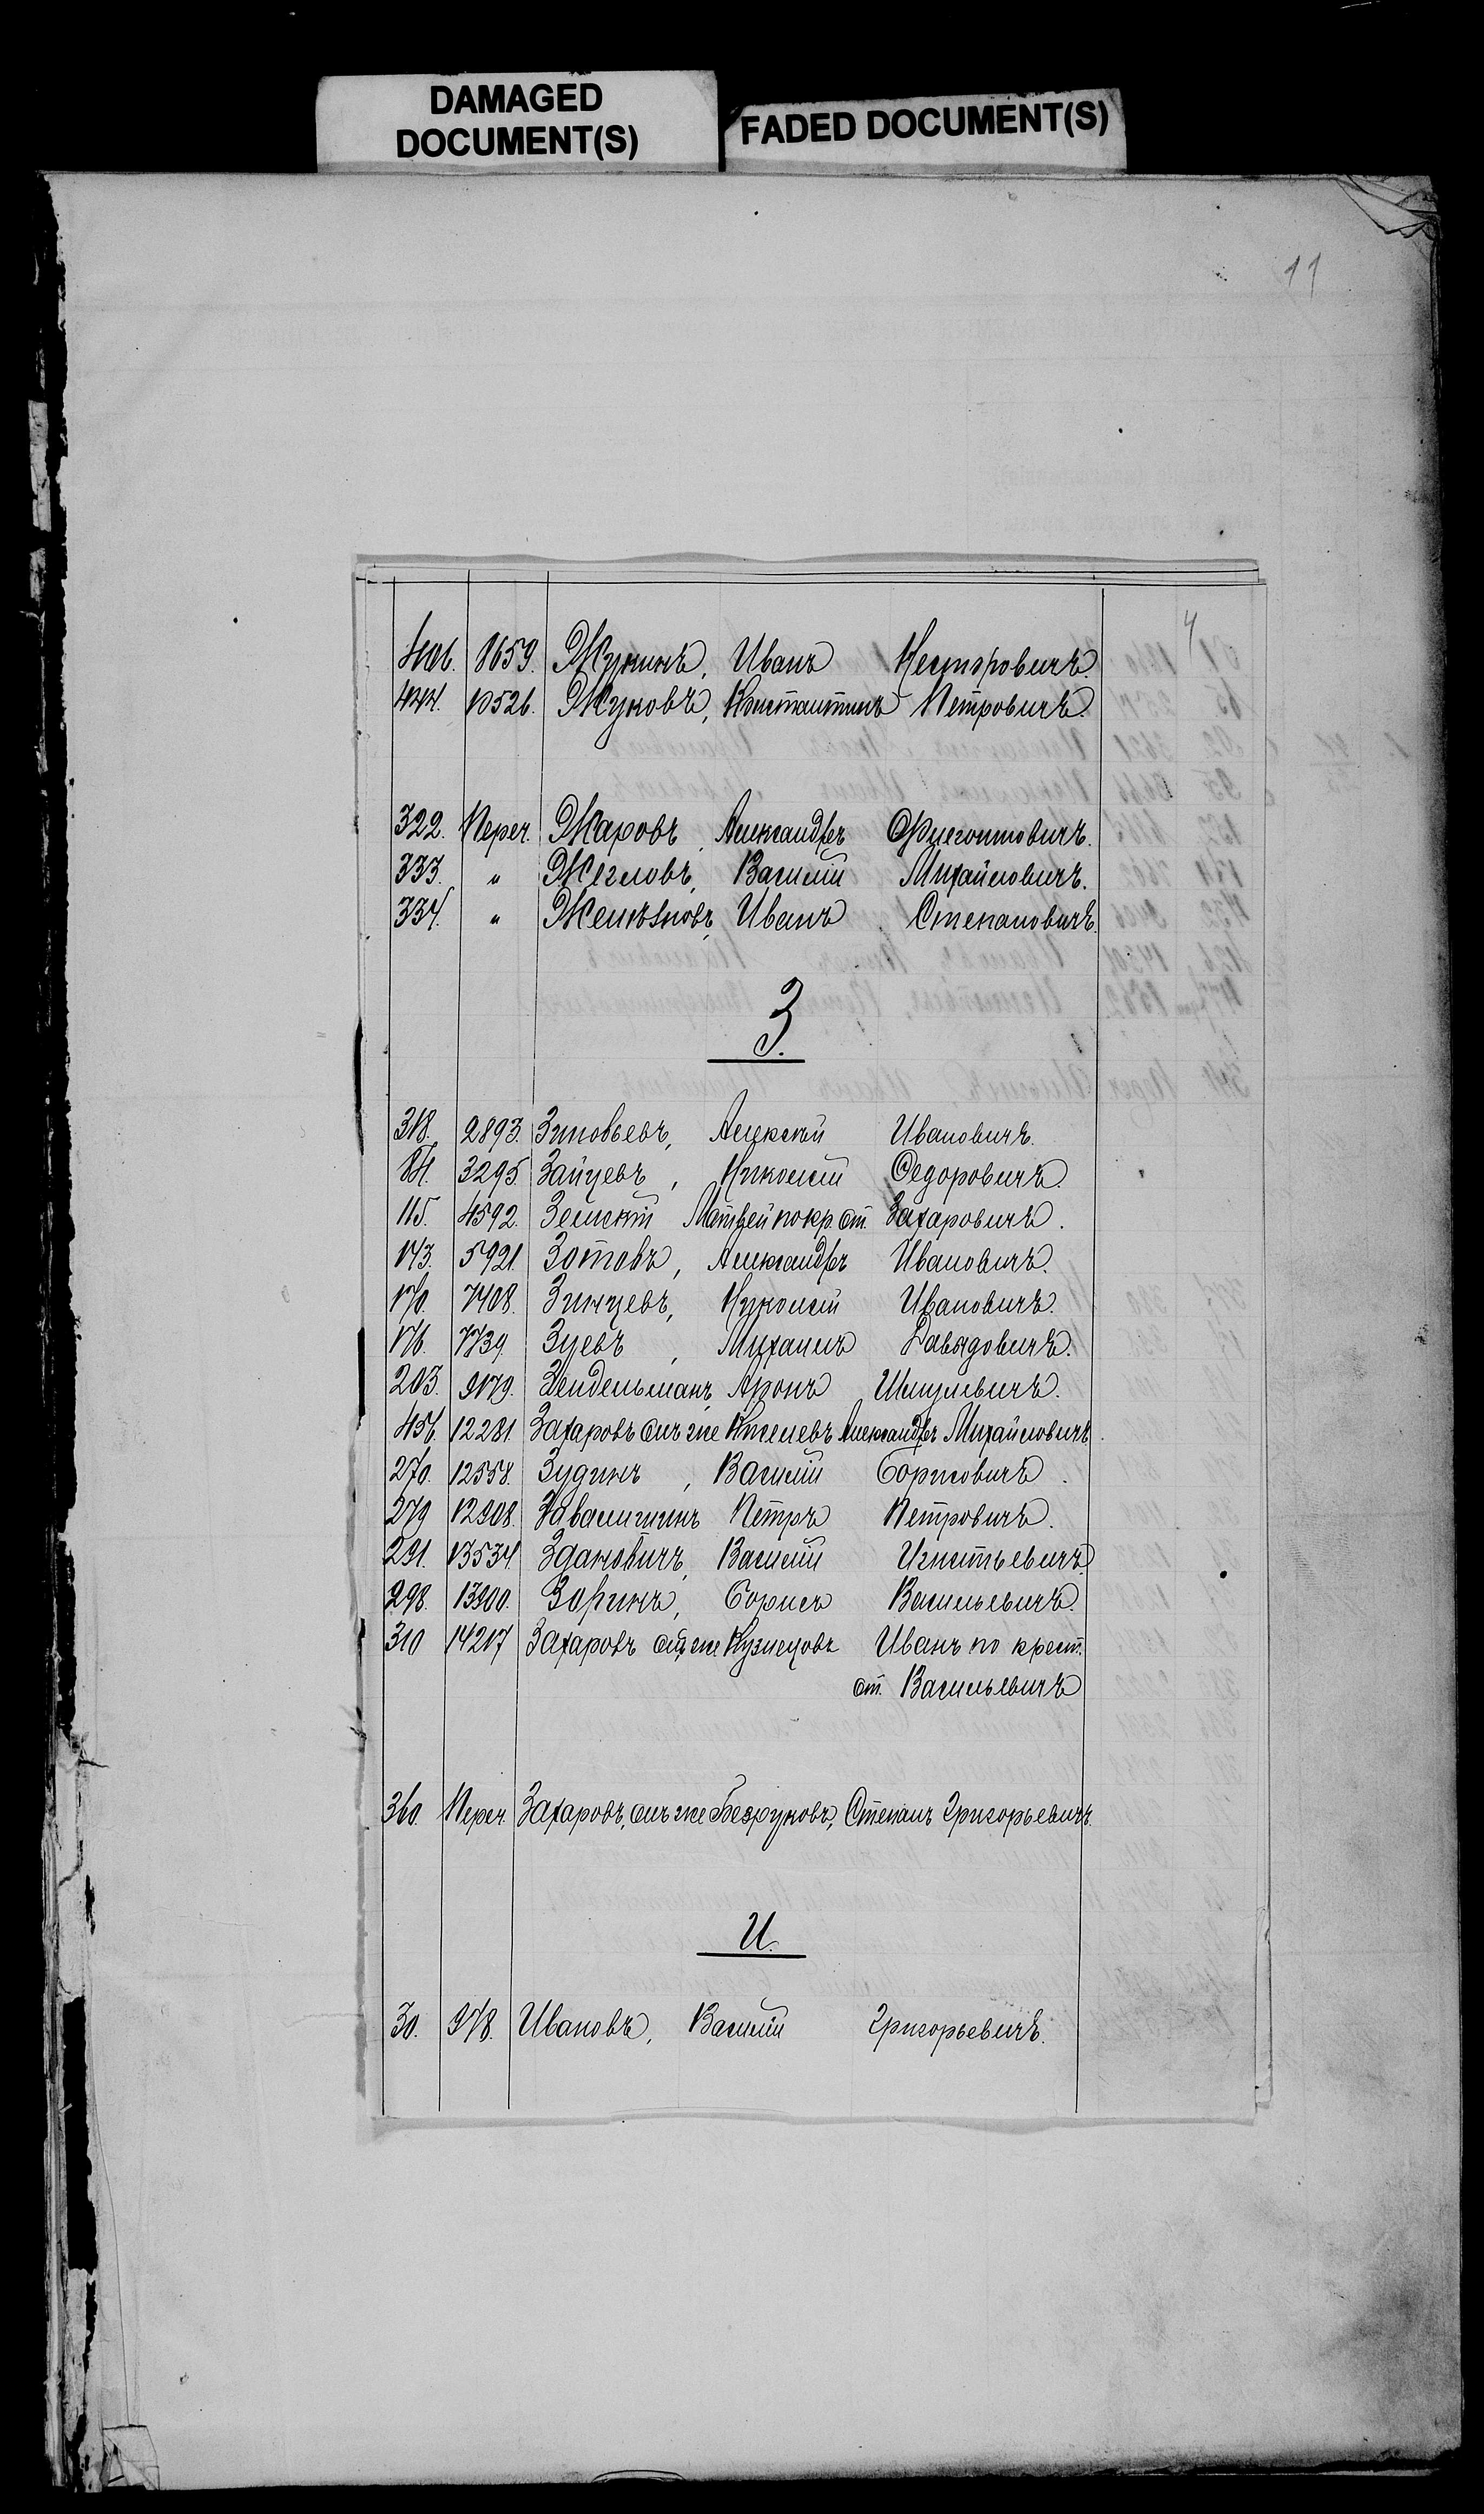 DAMAGED
DOCUMENT(S)
FADED DOCUMENT(S)
11
4
406. 8659. Жукинъ, Иванъ Несторовичъ.
444. 10526. Жуковъ, Константинъ Петровичъ.
322. Переч. Жаровъ, Александръ Флегонтовичъ.
333. " Жегловъ, Василій Михайловичъ.
334. " Желѣзновъ, Иванъ Степановичъ.
З.
318. 2893. Зиновьевъ, Алексѣй Ивановичъ.
84. 3295. Зайцевъ, Николай Ѳедоровичъ.
115. 4592. Земскій Матвѣй по кр. от. Захаровичъ.
143. 5921. Зотовъ, Александръ Ивановичъ.
170. 7408. Зинцевъ, Николай Ивановичъ.
176. 7739. Зуевъ, Михаилъ Давыдовичъ.
203. 9179. Зендельманъ, Аронъ Шмулевичъ.
456. 12281. Захаровъ онъ же Киселевъ Александръ Михайловичъ.
270. 12558. Зудинъ, Василій Борисовичъ.
279 12908. Завалишинъ Петръ Петровичъ.
291. 13534. Здановичъ, Василій Игнатьевичъ.
298. 13900. Зоринъ, Борисъ Васильевичъ.
310 14217 Захаровъ онъ же Кузнецовъ Иванъ по крест.
от. Васильевичъ
360. Переч. Захаровъ, онъ же Безруковъ, Степанъ Григорьевичъ.
И.
30. 978. Ивановъ, Василій Григорьевичъ.